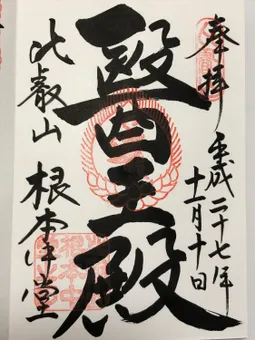 奉拝
平成二十七年
十一月十日
醫王殿
比叡山
根本中堂
根本中